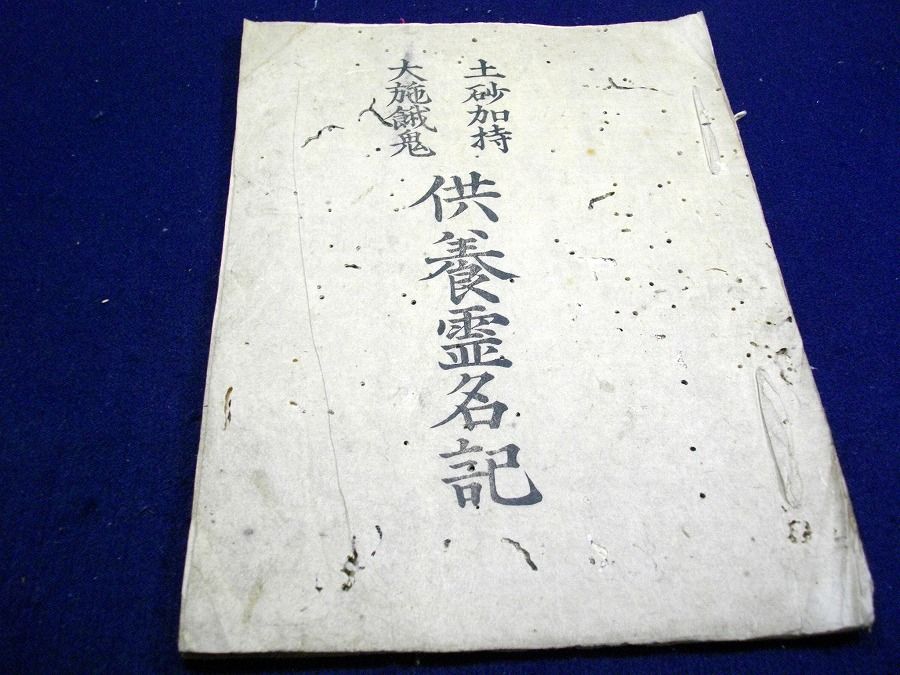 土砂加持
大施餓鬼
供養霊名記